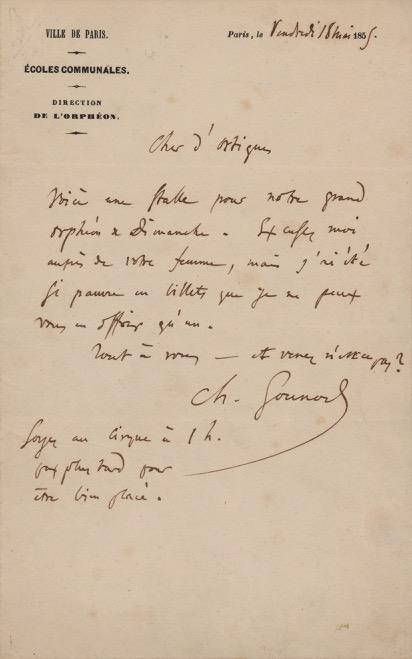 VILLE DE PARIS.
Paris, le Vendredi 18 Mai 1855.
ÉCOLES COMMUNALES.
DIRECTION
DE L'ORPHÉON.
Cher d'Ortigues
Voici une stalle pour notre grand
orphéon de Dimanche. Excusez moi
auprès de votre femme, mais j'ai été
si pauvre en billets que je ne peux
vous en offrir qu'un.
Tout à vous — et venez n'est-ce pas?
Ch. Gounod
Soyez au Cirque à 1 h.
pas plus tard pour
être bien placé.